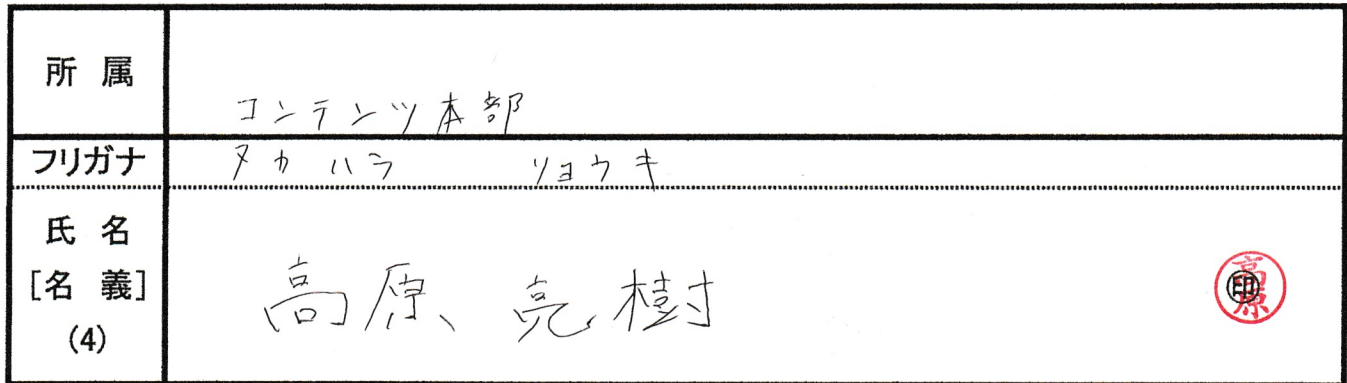 所 属
コンテンツ本部
フリガナ
タカハラ リョウキ
氏 名
[名 義]
(4)
高原 亮樹
高原
印